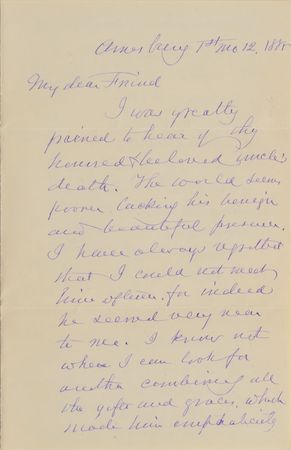 Amesbury 1st mo 12, 188
My dear Friend
I was greatly
pained to hear of thy
honored & beloved uncle's
death. The world seems
poorer lacking his benign
and beautiful presence.
I have always regretted
that I could not meet
him oftener, for indeed
he seemed very near
to me. I know not
where I can look for
another combining all
the gifts and graces, which
made him emphatically